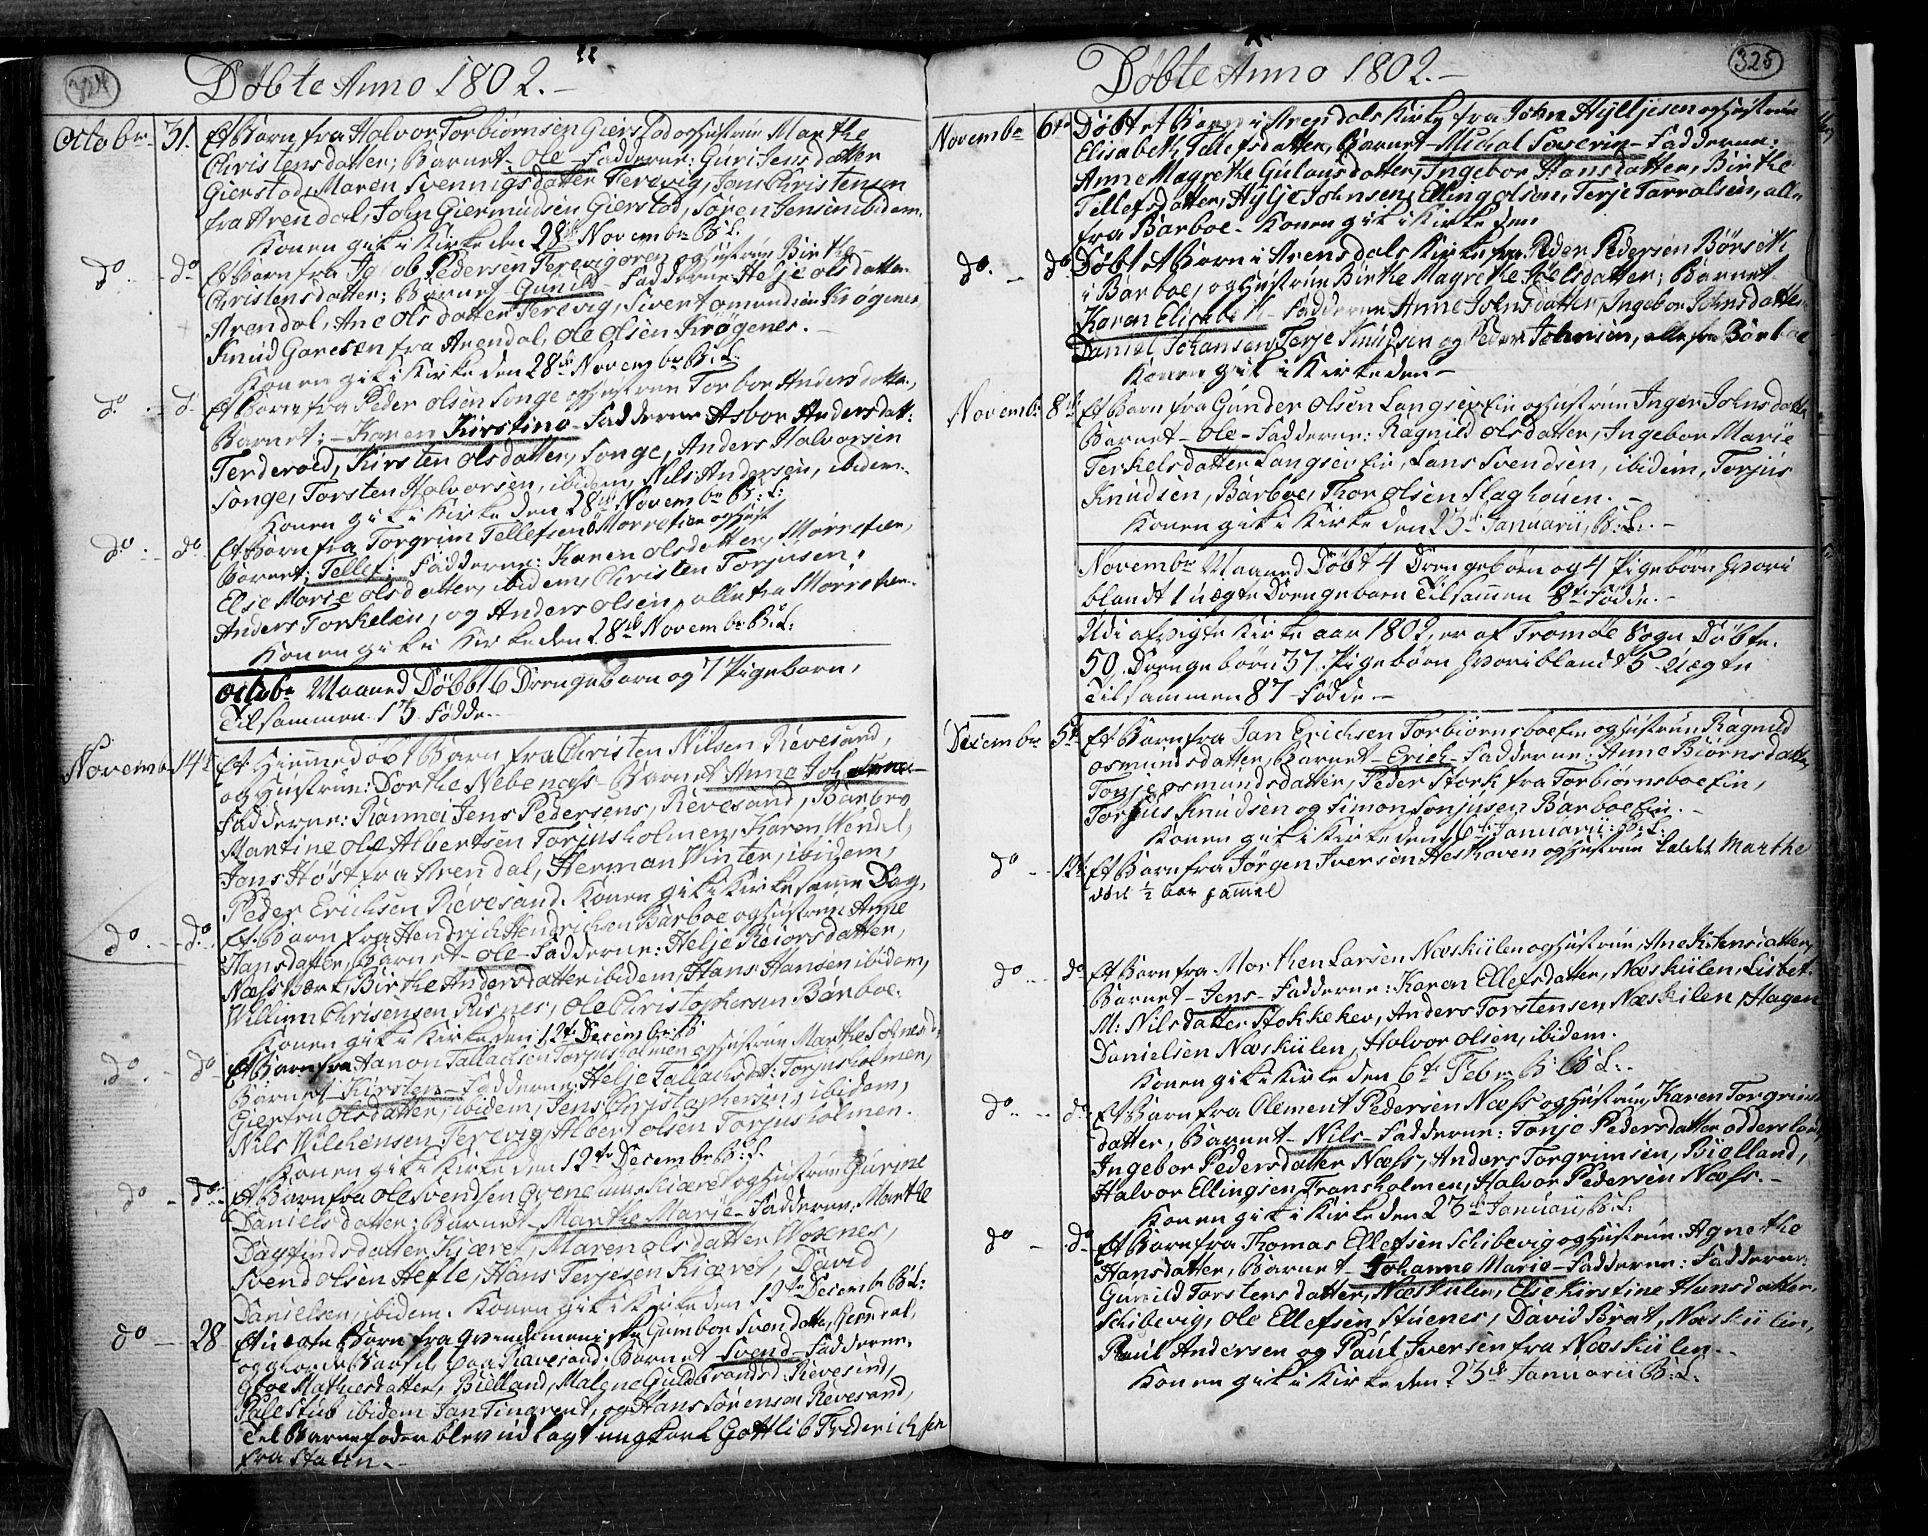 324
Døbte Anno 1802.
Octobr 31. Et Barn fra Halvor Torbiørnsen Gierstad og Hustrue Marthe
Christensdatter; Barnet - Ole - Fadderne: Guri Jensdatter
Gierstad, Maren Svennigsdatter Terevig, Jens Christensen
fra Arendal, John Giermundsen Gierstad, Søren Jensen ibidem.
Konen gik i Kirke den 28de Novembr B: L:
do - do Et Barn fra Jacob Pedersen Terevig oren og Hustrue Birthe
Christensdatter; Barnet - Gunild - Fadderne Helje Olsdatter
Arendal, Ane Olsdatter Terevig, Sivert Omundsen Krøgenes,
Knud Garesen fra Arendal, Ole Olsen Krøgenes. -
Konen gik i Kirke den 28de Novembr B: L:
do - do Et Barn fra Peder Olsen Songe og Hustrue Torbor Andersdatter,
Barnet: - Karen Kirstine - Fadderne Asbor Andersdatt:
Terderoed, Kirsten Olsdatter, Songe, Anders Halvorsen
Songe, Torsten Halvorsen, ibidem, Nils Andersen, ibidem.
Konen gik i Kirke den 28de Novembr B: L:
do - do Et Barn fra Torgrim Tellefsen Morrefier og Hust
Barnet; Tellef; Fadderne: Karen Olsdatter, Morrefier,
Else Marie Olsdatter, ibidem Christen Torjusen,
Anders Torkelsen, og Anders Olsen, alle fra Morrefier.
Konen gik i Kirke den 28de Novembr B: L:
Octobr Maaned Døbt 6 Drengebørn og 7 Pigebørn,
Tilsammen 13 Fødde.
Novembr 14de Et Hiemmedøbt Barn fra Christen Nilsen Revesand,
og Hustrue: Dorthe Nebenas - Barnet Anne Johanne -
Fadderne: Rannei Jens Pedersens, Revesand, Barbro
Martine Ole Albertsen Torjusholmen, Karen Wendel,
Jens Høst fra Arendal, Herman Winter, ibidem,
Peder Erichsen Revesand. Konen gik i Kirke samme Dag.
do - do Et Barn fra Hendrich Hendrichsen Barboe og Hustrue Anne
Hansdatter, Barnet - Ole - Fadderne: Helje Reiorsdatter,
Næss Værk, Birthe Andersdatter ibidem, Hans Hansen ibidem,
Willum Chrisensen Pusnes, Ole Christophersen Barboe.
Konen gik i Kirke den 12te Decembr B:
do - do Et Barn fra Aanon Tallachsen Torjusholmen og Hustrue Marthe
Barnet Kirsten - Fadderne: Helje Tallachsdt: Torjusholmen,
Giertru Olsdatter, ibidem, Jens Christophersen, ibidem,
Nils Wilchensen Terevig, Albert Olsen Torjusholmen.
Konen gik i Kirke den 12te Decembr B: L:
do - do Et Barn fra Ole Svendsen Gveneiums Kiæret og Hustrue Gurine
Danielsdatter; Barnet - Marthe Marie - Fadderne: Marthe
Dagfindsdatter Kiæret, Maren Olsdatter Woxnes,
Svend Olsen Hefle, Hans Terjesen Kiæret, David
Danielsen, ibidem. Konen gik i Kirke den 12te Decembr B: L:
do - 28 Et uægte Barn fra Qvindemenniske Gumbor Svendatter,
paa Ravesand: Barnet Svend - Fadderne
Mathiesdatter, Bielland, Malene Guldbrandsd: Revesand,
Pale Stub ibidem Jan Tingvend, og Hans Sørensen Revesand,
Til Barnefader blev udlagt ungkarl Gottlib Friderichsen
fra Statin. -
325
Døbte Anno 1802. -
Novembr 6te Døbt et Barn i Arendals Kirke fra John Hylljesen og Hustrue
Elisabeth Tellefsdatter, Barnet - Michal Severin - Fadderne:
Anne Magrethe Gulausdatter, Ingebor Hansdatter, Birthe
Tellefsdatter, Hylje Johnsen, Elling Olsen, Terje Tarralsen, alle
fra Barboe - Konen gik i Kirke den
do. - do Døbt et Barn i Arendals Kirke fra Peder Pedersen Børseth
i Barboe, og Hustrue Birthe Magrethe Nielsdatter; Barnet
Karen Elisabeth - Fadderne Anne Johnsdatter, Ingebor Johnsdatter
Daniel Johansen, Terje Knudsen og Peder Johnsen, alle fra Barboe
Konen gik i Kirke den -
Novembr 8de Et Barn fra Gunder Olsen Langsevein og Hustrue Inger Johnsdatter
Barnet - Ole - Fadderne: Ragnild Olsdatter, Ingebor Marie
Terkelsdatter Langsevein, Lans Svendsen, ibidem, Torjus
Knudsen, Barboe, Thor Olsen Slaghouen. -
Konen gik i Kirke den 23de Januarii, B: L: -
Novembr Maaned Døbt 4 Drengebørn og 4 Pigebørn hvori
blandt 1 uægte Drengebarn Tilsammen 8te Fødde. -
Udi afvigte Kirke aar 1802, er af Tromøe Sogn Døbte.
50, Drengebørn 37. Pigebørn hvoriblandt 5 - Uægte
Tilsammen 87 - Fødde -
Decembr 5te Et Barn fra Jan Erichsen Torbiørnsboe Ein og Hustrue Ragnild
Osmundsdatter, Barnet - Erich - Fadderne: Anne Biørnsdatter,
Tonje Osmundsdatter, Peder Stork fra Torbiørnsboe Ein,
Torjus Knudsen og Simon Tonjusen Barboe Ein. -
Konen gik i Kirke den 16de Januarii: B: L:
do - 12te Et Barn fra Jørgen Iversen Heshaven og Hustrue kaldet Marthe
død 1/2 aar gammel
do - do Et Barn fra Morthen Larsen Næskiilen og Hustrue, Ane
Barnet - Jens - Fadderne: Karen Ellefsdatter, Næskiilen, Lisbet
M: Nilsdatter Stokkekev, Anders Torstensen Næskilen, Hagen
Danielsen Næskiilen, Halvor Olsen, ibidem.
Konen gik i Kirke den 6te Febr. B: L:
do - do Et Barn fra Olement Pedersen Næss og Hustrue, Karen Torgrims
datter, Barnet - Nils - Fadderne: Tonje Pedersdatter Oddersland,
Ingebor Pedersdatter Næss, Anders Torgrimsen, Bielland,
Halvor Ellingsen Fransholmen, Halvor Pedersen Næss. -
Konen gik i Kirke den 23de Januarii, B: L:
do - do Et Barn fra Thomas Ellefsen Schibevig og Hustrue Agnethe
Hansdatter, Barnet - Johanne Marie - Fadderne: Fadderne:
Gunild Torstensdatter, Næskiilen, Else Kirstine Hansdatter,
Schibevig, Ole Ellefsen Stuenes, David Brat, Næskiilen,
Poul Andersen og Paul Iversen fra Næskiilen. -
Konen gik i Kirke den 23de Januarii B: L: